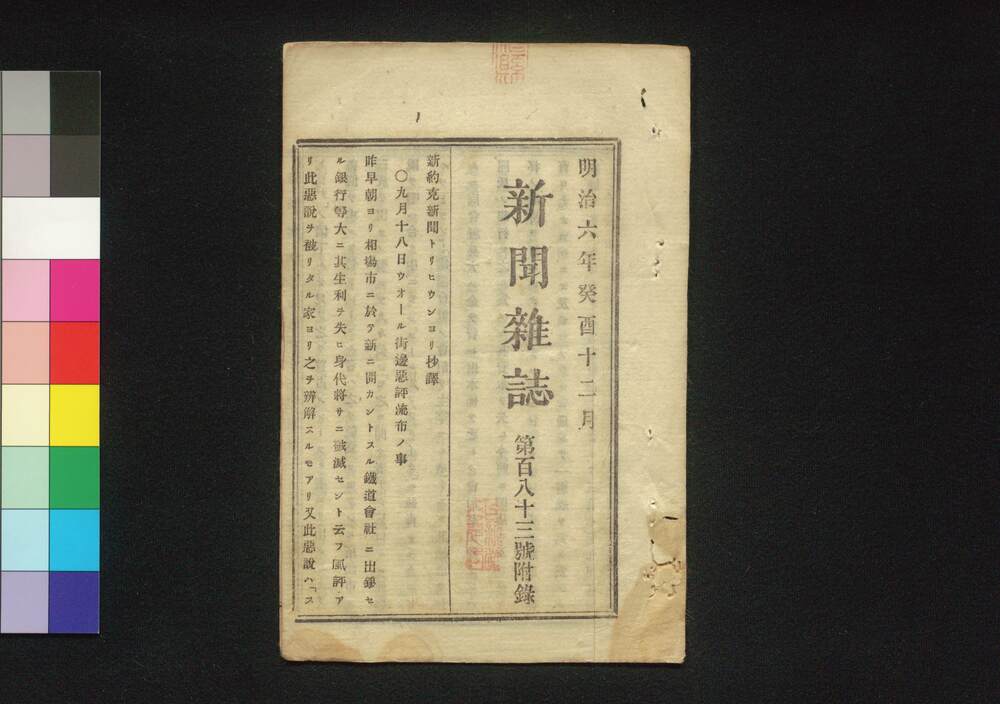 明治六年癸酉十二月
新聞雜誌 第百八十三號附錄
新約克新聞トリヒウンヨリ抄譯
〇九月十八日ウオール街邊惡評流布ノ事
昨早朝ヨリ相場市ニ於テ新ニ開カントスル鐵道會社ニ出銀セ
ル銀行等大ニ其生利ヲ失ヒ身代將サニ破滅セント云フ風評ア
リ此惡説ヲ被リタル家ヨリ之ヲ辨解スルモアリ又此惡說ハ「ス